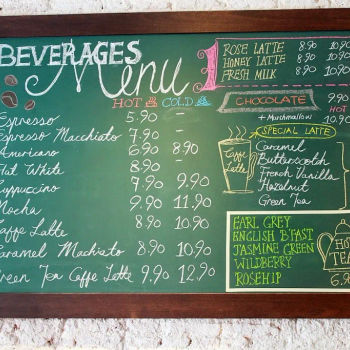 BEVERAGES
Menu
HOT COLD
Espresso 5.90 -
Espresso Macchiato 7.90 -
Americano 6.90 8.90
Flat White 8.90 -
Cappuccino 7.90 9.90
Mocha 9.90 11.90
Caffe Latte 8.90 10.90
Caramel Machiato 8.90 10.90
Green Tea Caffe Latte 9.90 12.90
ROSE LATTE 8.90 10.90
HONEY LATTE 8.90 10.90
FRESH MILK 8.90 10.90
CHOCOLATE 9.90
HOT
+ Mushmallow 10.90
SPECIAL LATTE
Caffe Latte
Caramel
Butterscotch
French Vanilla
Hazelnut
Green Tea
EARL GREY
ENGLISH B'FAST
JASMINE GREEN
WILDBERRY
ROSEHIP
HOT
TEA
6.90